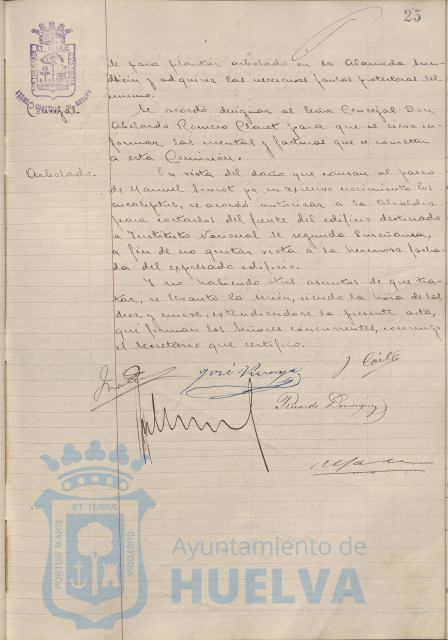 25
de para plantar arbolado en la Alameda Sun-
dheim y adquirir las necesarias jaulas protectoras del
mismo.
Concejal.
Se acordó designar al Señor Concejal Don
Abelardo Romero Claret para que se sirva in-
formar las cuentas y facturas que se someten
a esta Comisión.
Arbolado.
En vista del daño que causan al paseo
de Manuel Siurot por su excesivo crecimiento los
eucaliptus, se acordó autorizar a la Alcaldía
para cortarlos del frente del edificio destinado
a Instituto Nacional de segunda Enseñanza,
a fin de no quitar vista a la hermosa facha-
da del expresado edificio.
Y no habiendo otros asuntos de que tra-
tar, se levantó la sesión, siendo la hora de las
diez y nueve, extendiéndose la presente acta,
que firman los Señores concurrentes, conmigo
el Secretario que certifico.
José
Ricardo Dominguez
PORTUS MARIS
ET TERRÆ
CUSTODIA
Ayuntamiento de
HUELVA